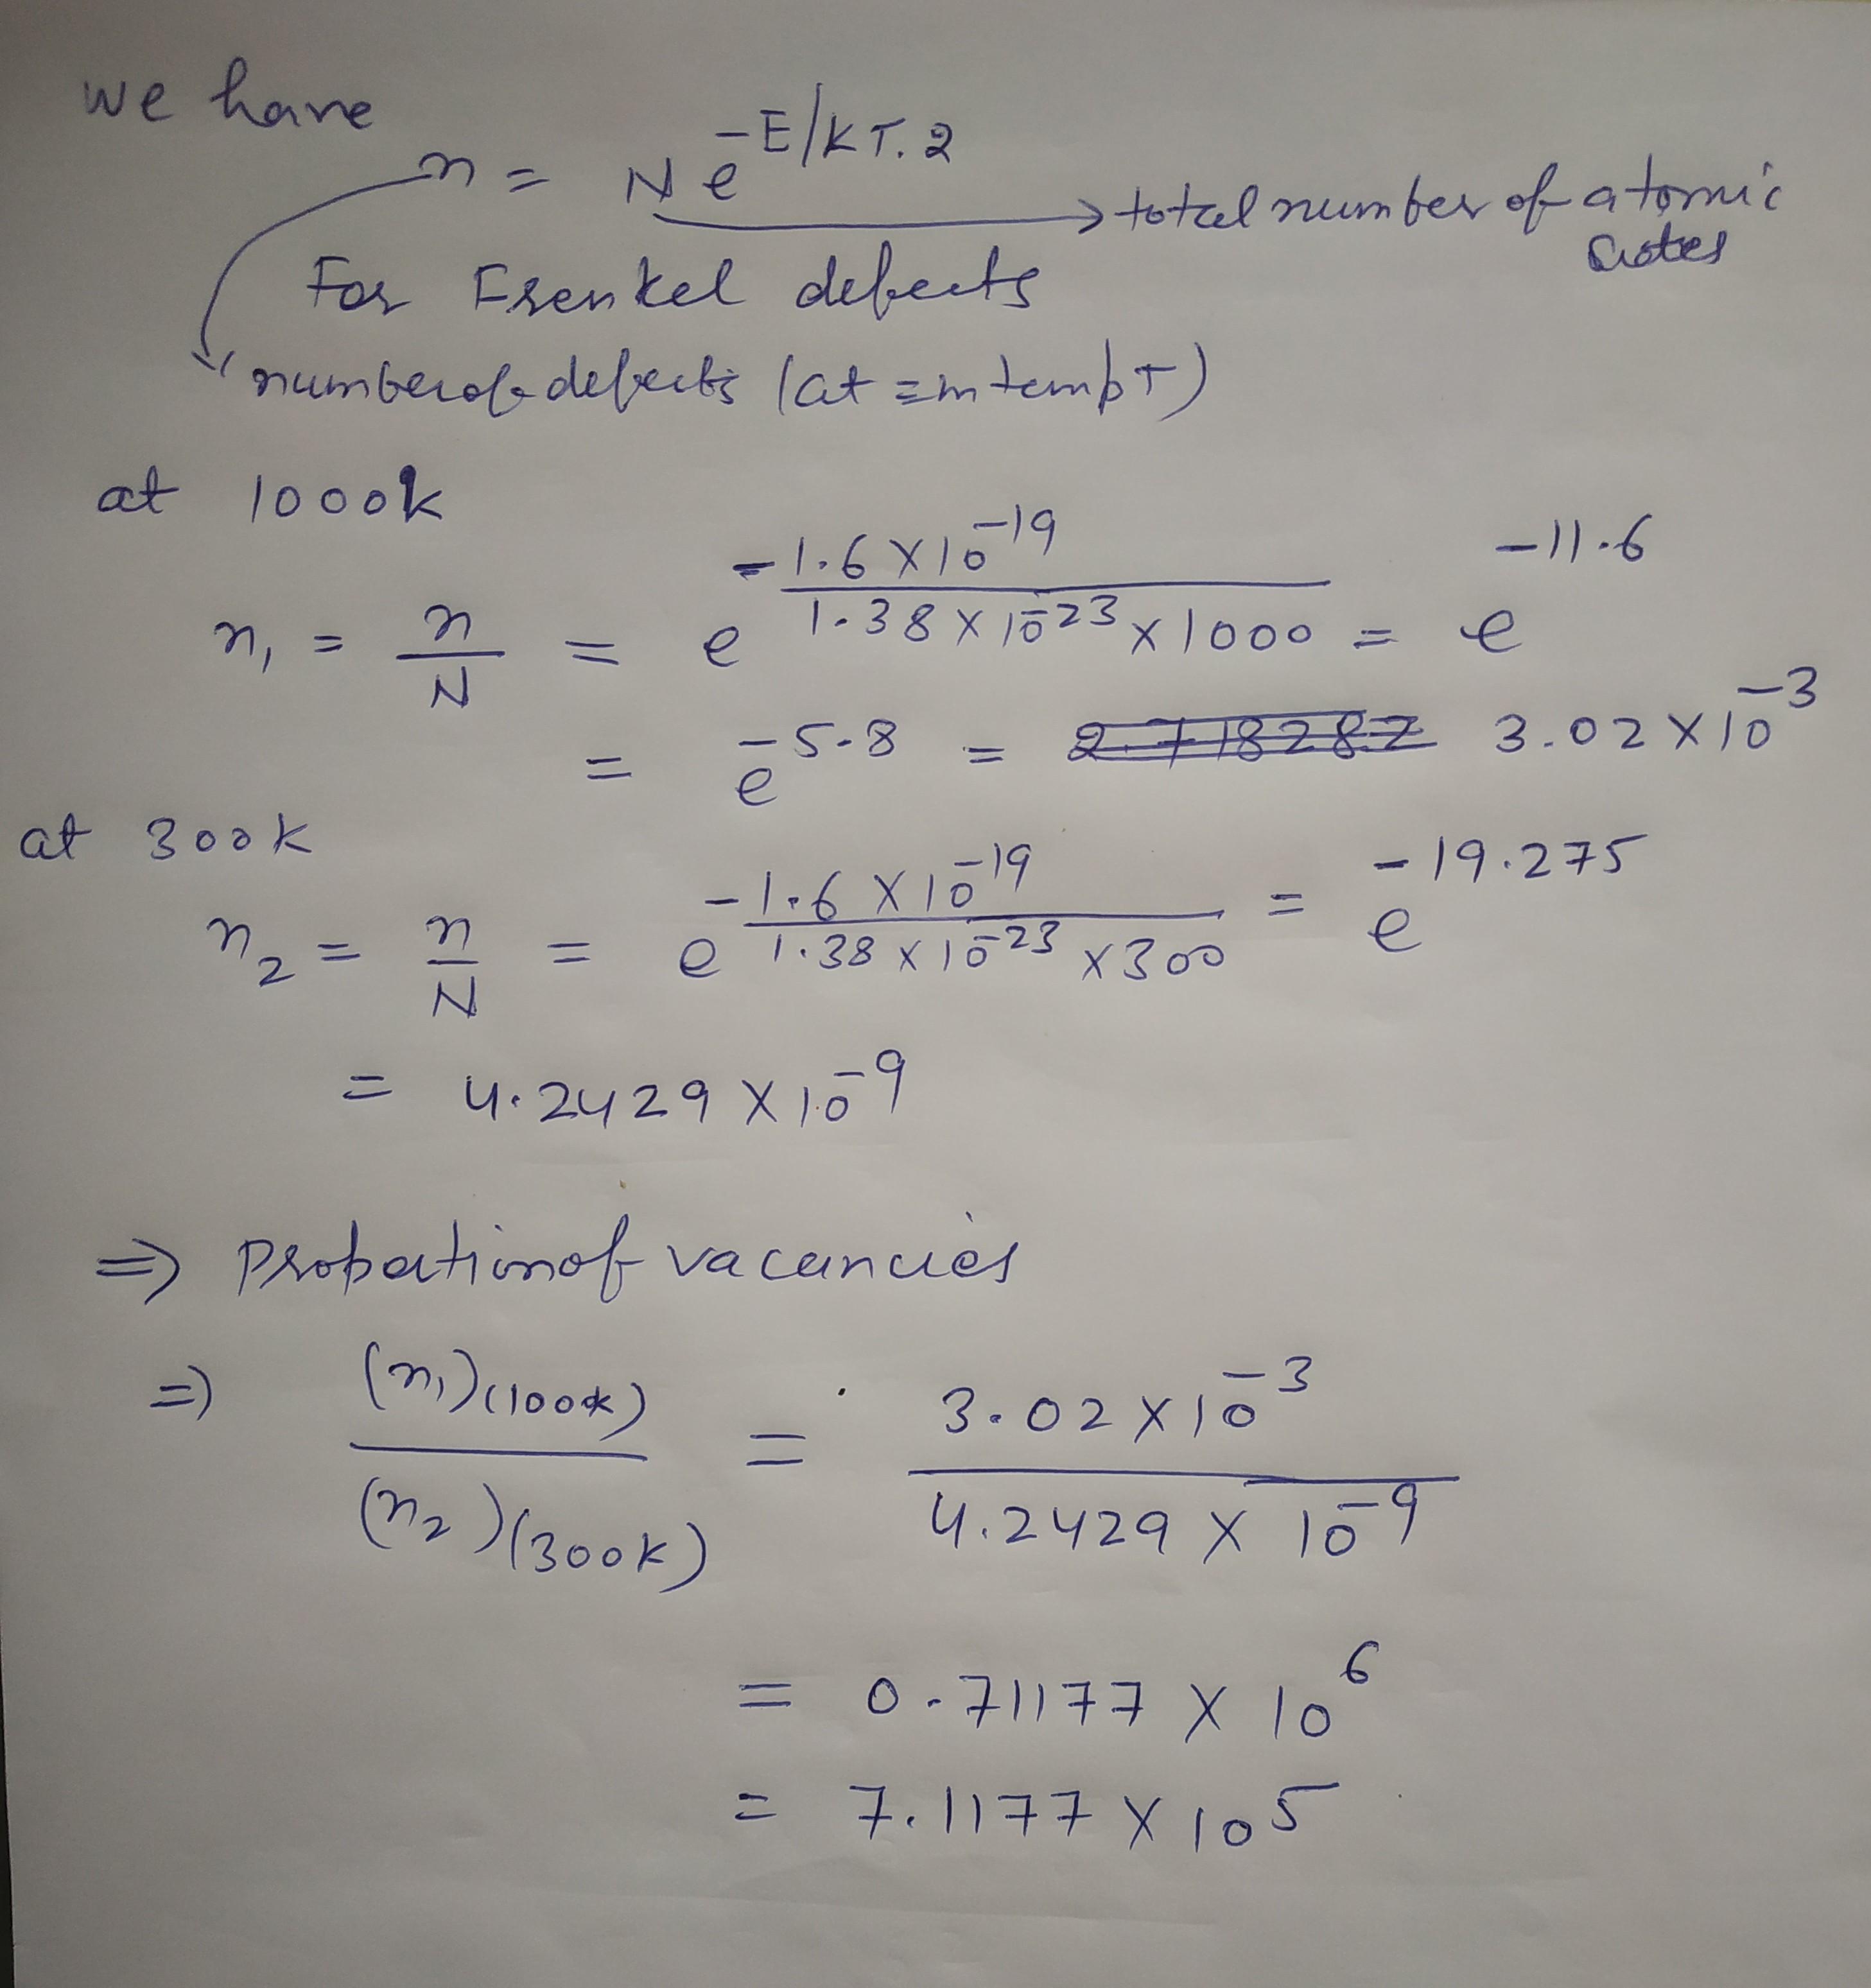 we have
n = N e^{-E/KT.2} → total number of atomic
sites
For Frenkel defects
number of defects (at = m temp T)
at 1000k
n₁ = n/N = e^{-1.6 × 10^{-19} / 1.38 × 10^{-23} × 1000} = e^{-11.6}
= e^{-5.8} = 2.718287 3.02 × 10^{-3}
at 300k
n₂ = n/N = e^{-1.6 × 10^{-19} / 1.38 × 10^{-23} × 300} = e^{-19.275}
= 4.2429 × 10^{-9}
⇒ Propertion of vacancies
⇒ (n₁)(100k) / (n₂)(300k) = 3.02 × 10^{-3} / 4.2429 × 10^{-9}
= 0.71177 × 10^6
= 7.1177 × 10^5